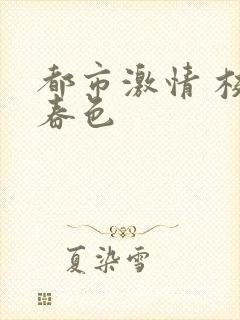 都市激情
春色
夏染雪